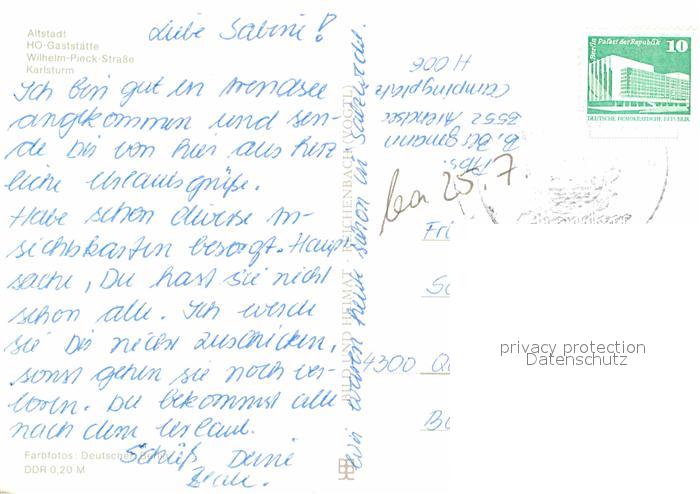 Altstadt
HO-Gaststätte
Wilhelm-Pieck-Straße
Karlsturm
Liebe Sabine!
Ich bin gut in Arendsee
angekommen und sen-
de Dir von hier aus herz
liche Urlaubsgrüße.
Habe schon diverse An-
sichtskarten besorgt. Haupt
sache, Du hast sie nicht
schon alle. Ich werde
sie Dir nicht zuschicken,
sonst gehen sie noch ver-
loren. Du bekommst alle
nach dem Urlaub.
Tschüß Deine
Wir waren heute schon in Salzwedel.
Farbfotos: Deutscher
DDR 0,20 M
BILD UND HEIMAT REICHENBACH (VOGTL)
Abs.
B. Bergmann
3552 Arendsee
Campingplatz
H 006
25.7
Berlin Palast der Republik
10
DEUTSCHE DEMOKRATISCHE REPUBLIK
Fri
4300 Q
privacy protection
Datenschutz